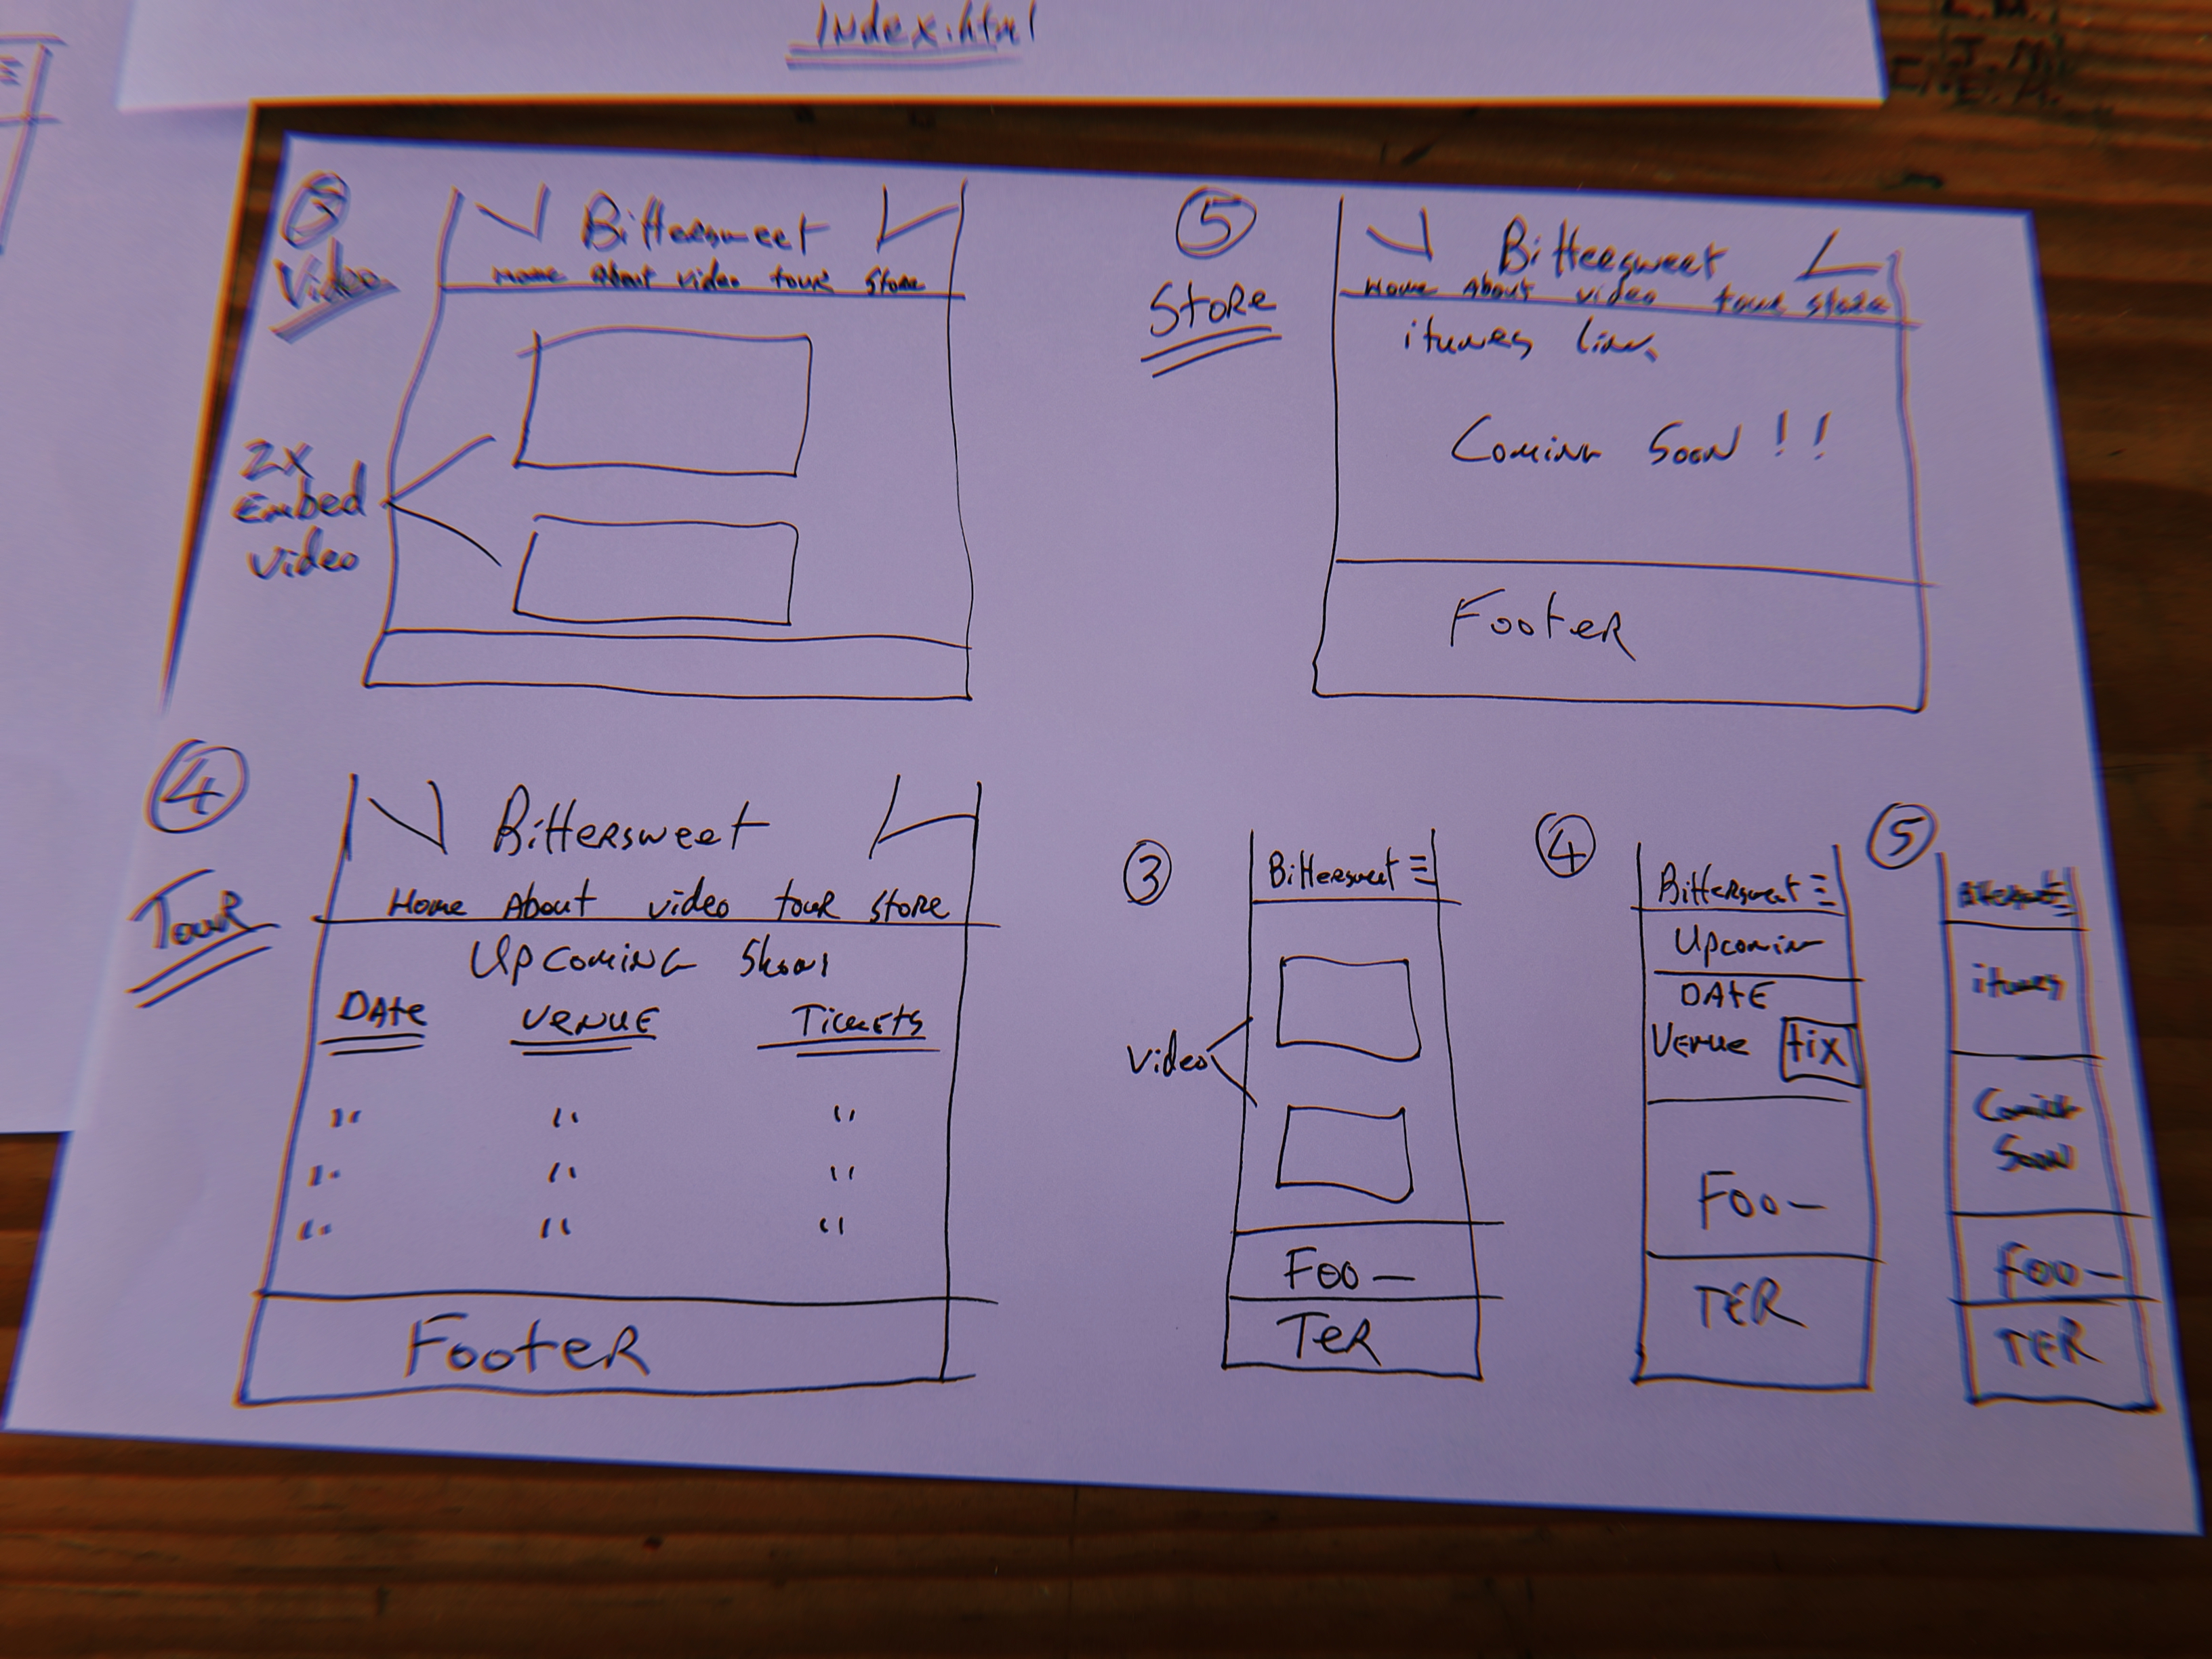 Index.html
3
Video
Bittersweet
Home About video tour Store
2x
Embed
video
5
Store
Bittersweet
Home About video tour store
itunes
Coming Soon !!
Footer
4
Tour
Bittersweet
Home About video tour store
Upcoming Shows
Date Venue Tickets
" " "
" " "
" " "
Footer
3
Bittersweet
Video
Foo -
Ter
4
Bittersweet
Upcomin
Date
Venue tix
Foo -
TER
5
itunes
Soon
Foo -
TER